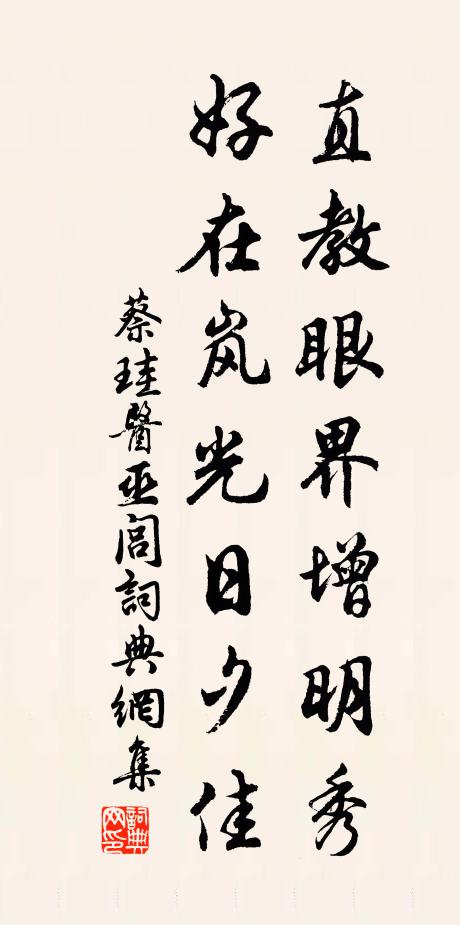 直教眼界增明秀
好在岚光日夕佳
蔡珪醫巫閭詞典網集
詞典网印